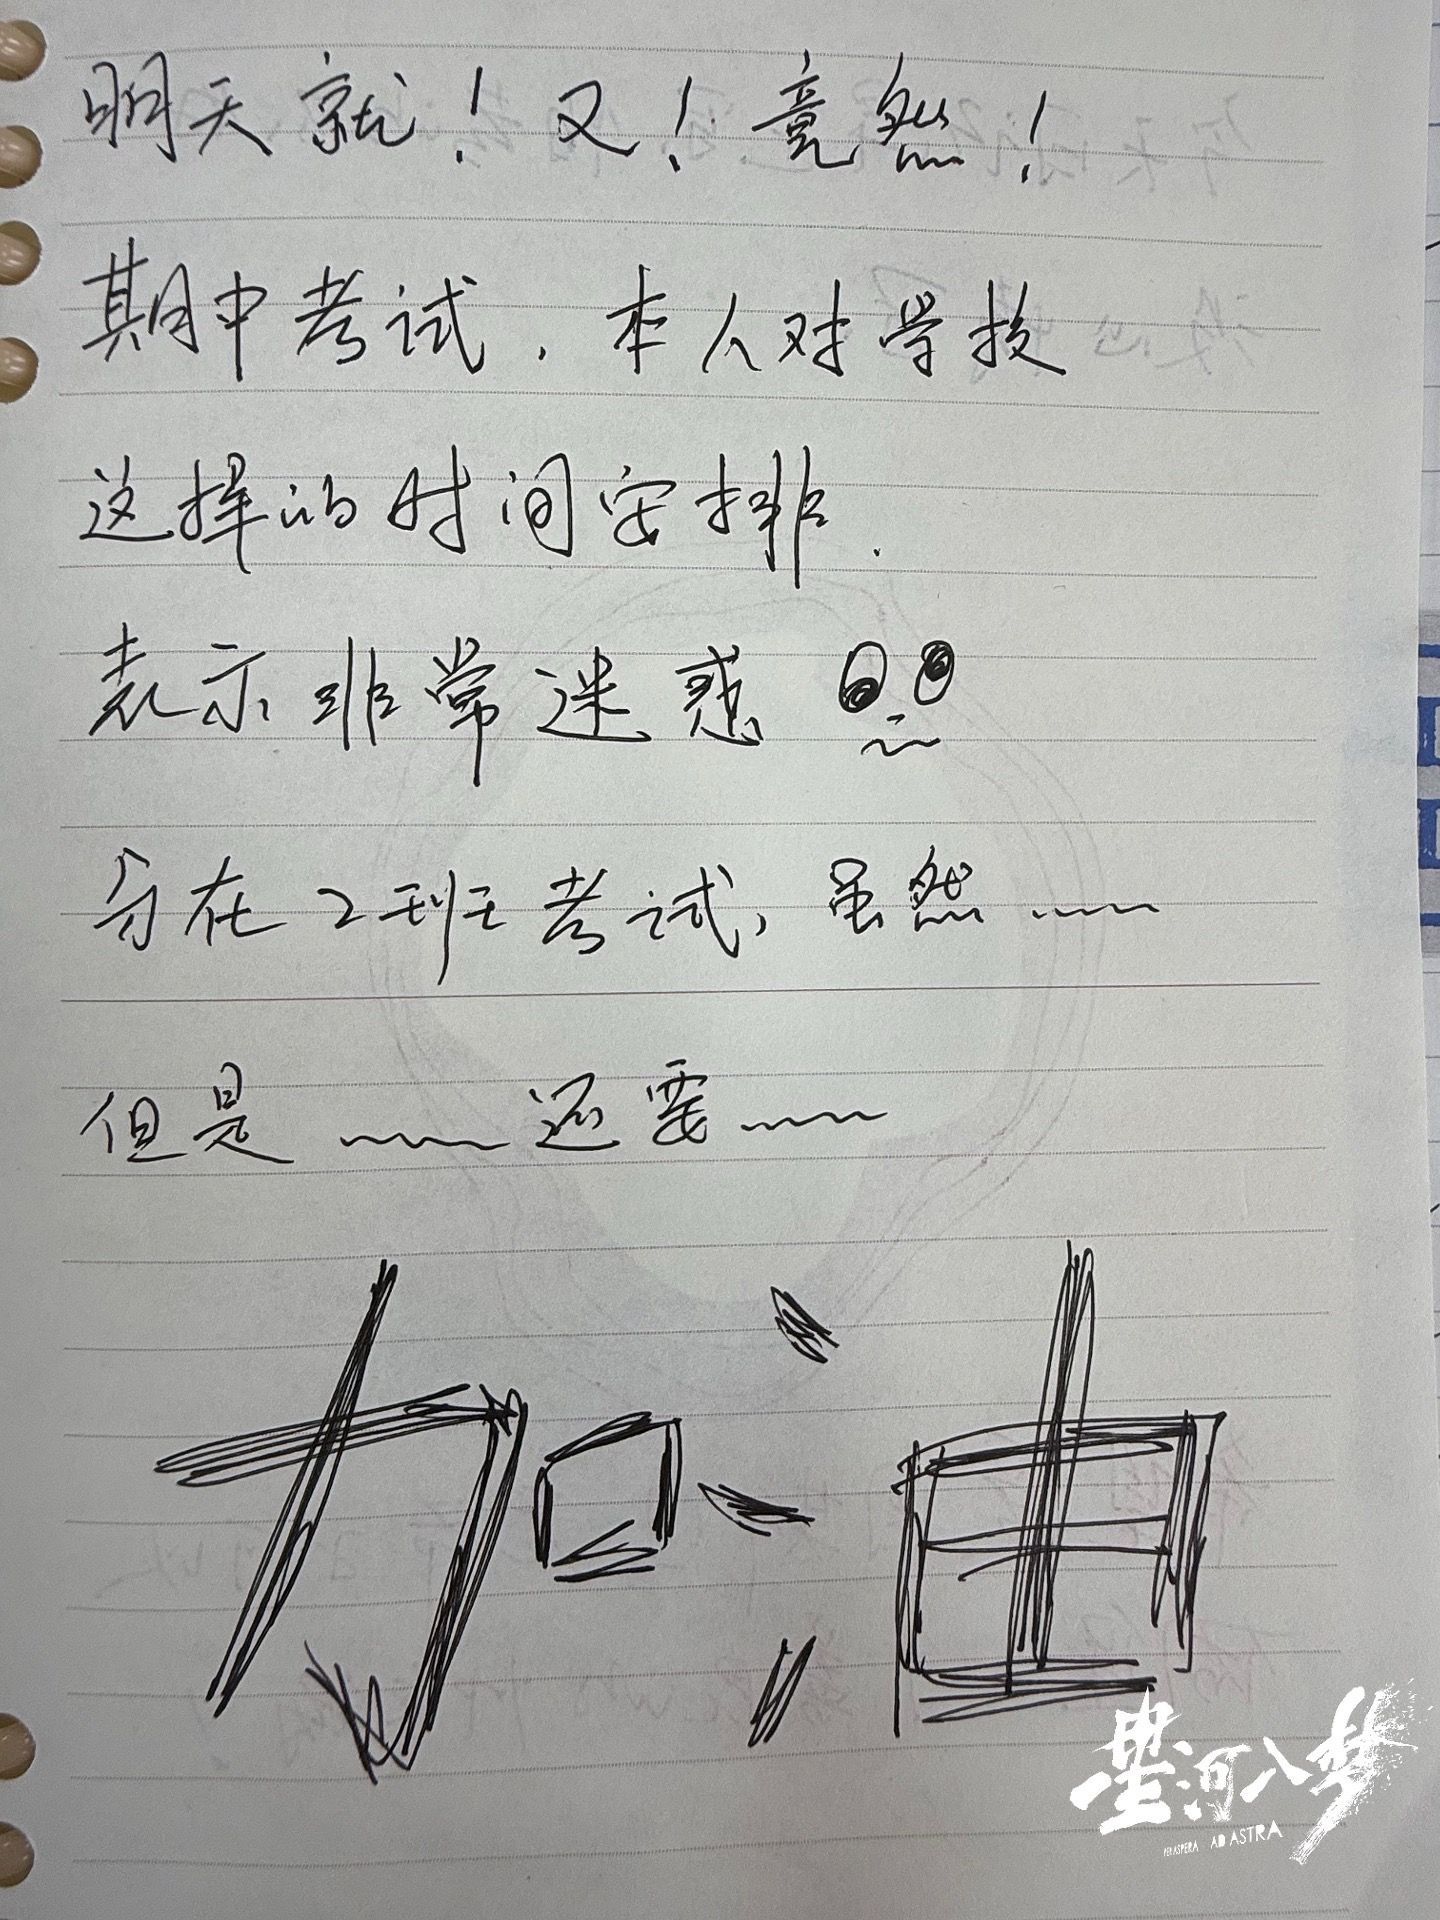 明天就！又！竟然！
期中考试，本人对学校
这样的时间安排.
表示非常迷惑
分在2班考试，虽然﹏﹏
但是﹏﹏还要﹏﹏
加油
星河入梦
PER ASPERA AD ASTRA